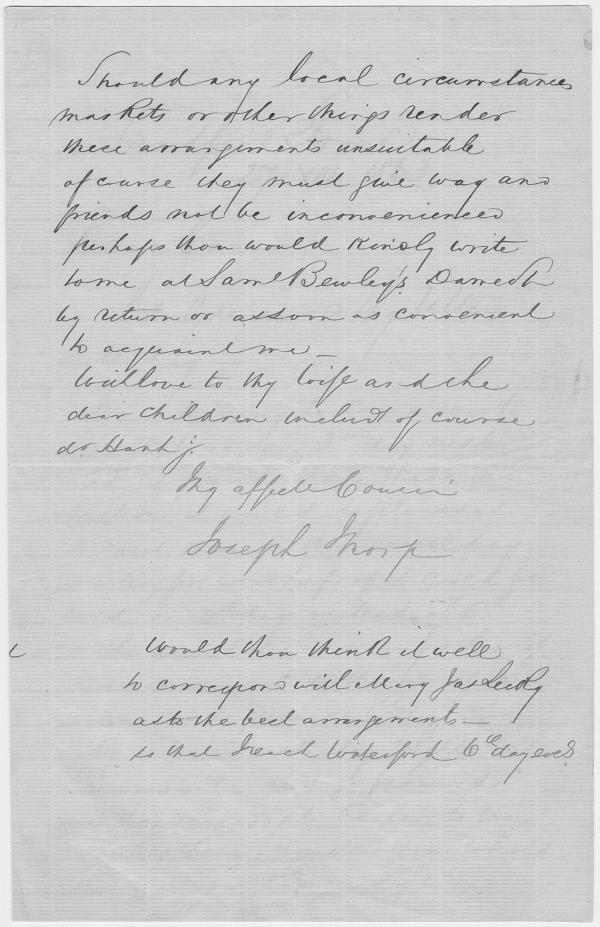 Should any local circumstances
markets or other things render
these arrangements unsuitable
of course they must give way and
friends not be inconvenienced
perhaps thou would kindly write
to me at Saml Bewley's Dame St
by return or as soon as convenient
to acquaint me —
With love to thy Wife and the
dear children includg of course
dr
Thy affecte Cousin
Joseph Thorp
Would thou think it well
to correspond with Mary Jas
as to the best arrangements —
so that I reach Waterford 6th day